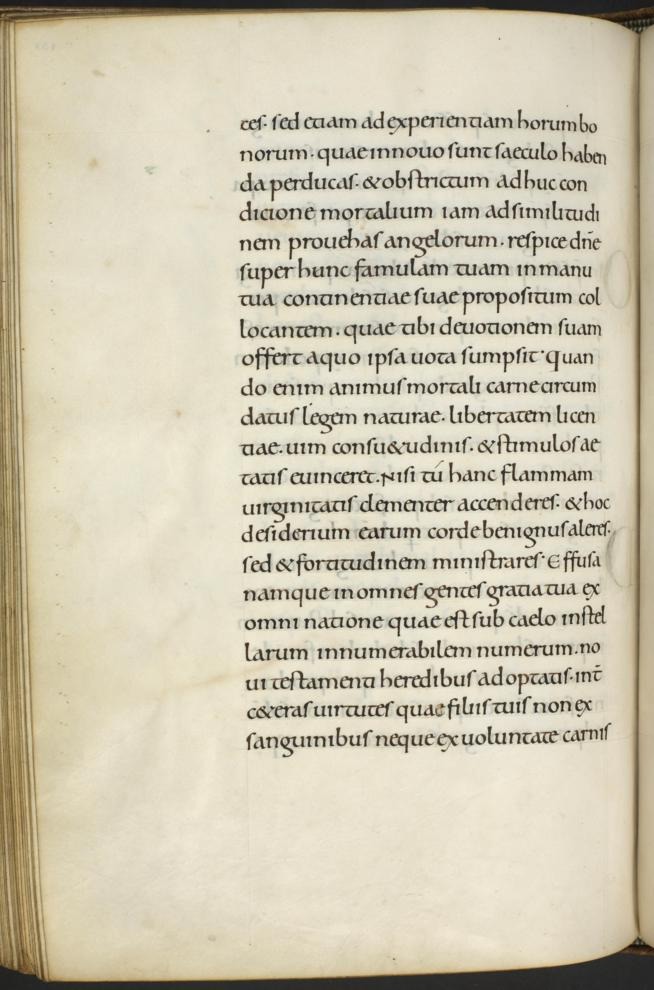 tes· sed etiam ad experientiam horum bo
norum· quae innouo sunt saeculo haben
da perducas· & obstrictum adhuc con
dicione mortalium iam ad similitudi
nem prouehas angelorum· respice dn̄e
super hunc famulam tuam in manu
tua continentiae suae propositum col
locantem· quae tibi deuotionem suam
offert a quo ipsa uota sumpsit· quan
do enim animus mortali carne circum
datus legem naturae· libertatem licen
tiae· uim consu&udinis· & stimulos ae
tatis euinceret· Nisi tú hanc flammam
uirginitatis clementer accenderes· & hoc
desiderium earum corde benignus aleres·
sed & fortitudinem ministrares· Effusa
namque in omnes gentes gratia tua ex
omni natione quae est sub caelo in stel
larum innumerabilem numerum· no
ui testamenti heredibus adoptatis· int̄
c&eras uirtutes quae filiis tuis non ex
sanguinibus neque ex uoluntate carnis